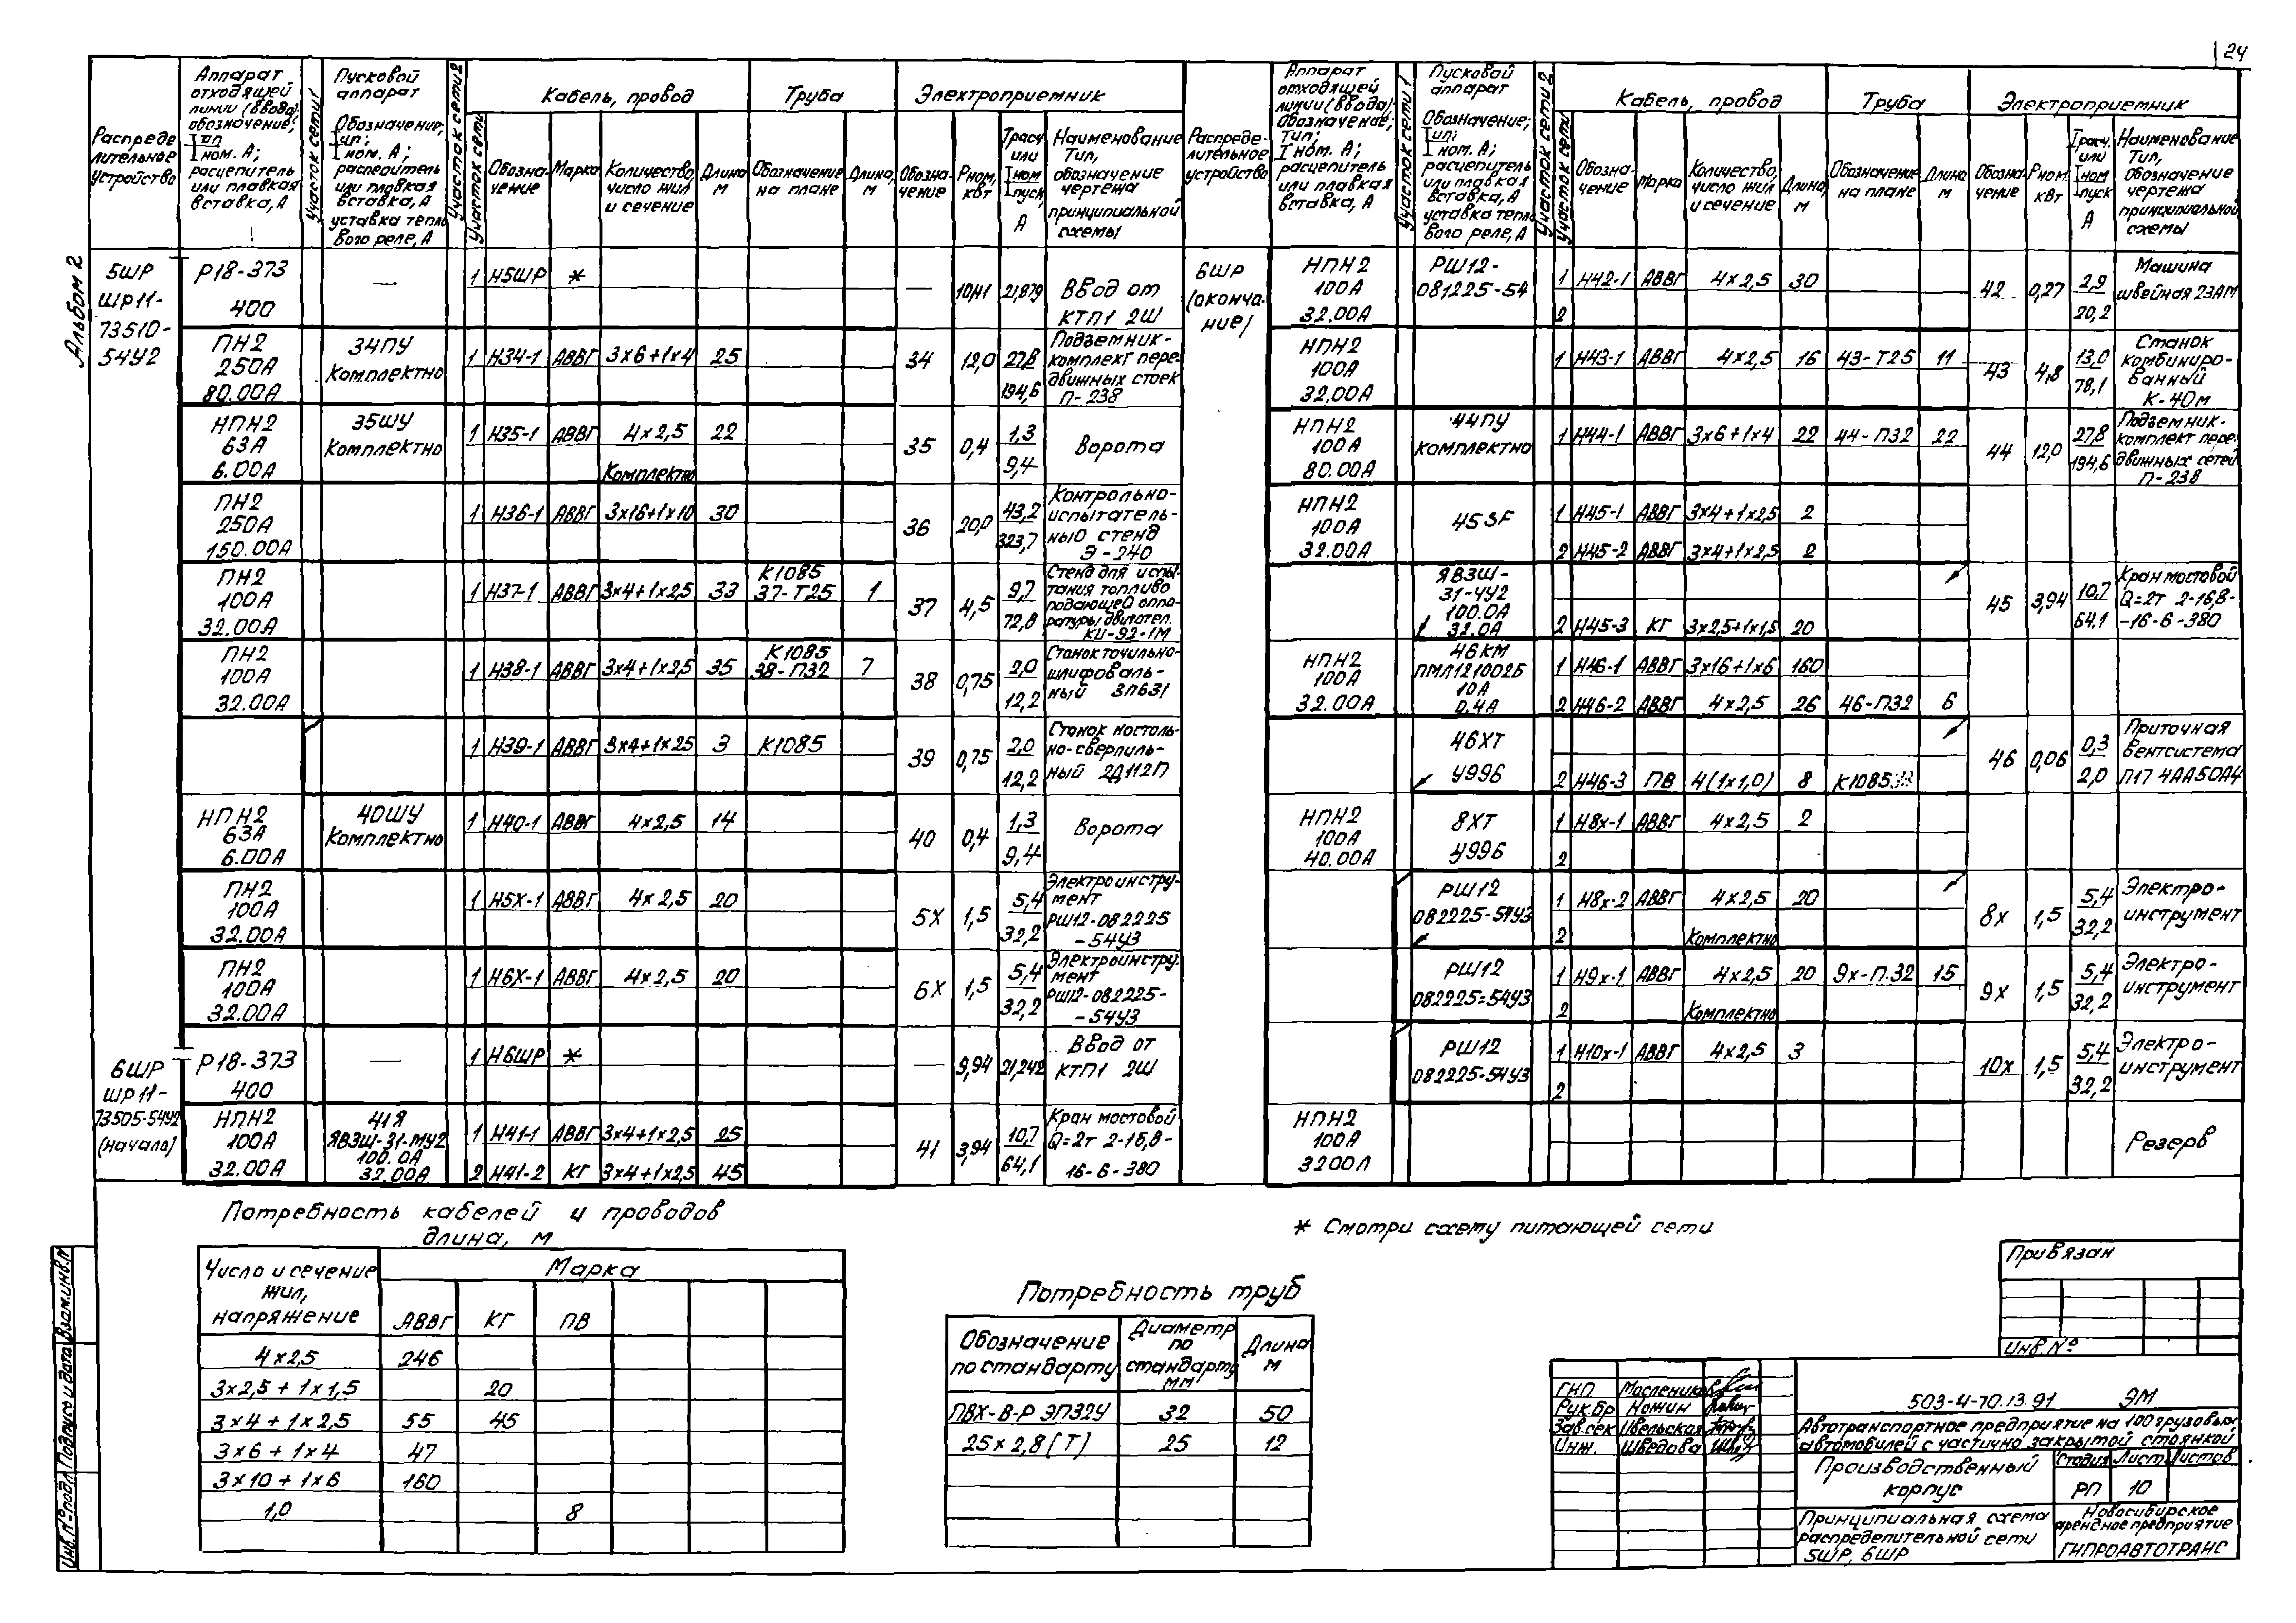 24
Альбом 2
Распределительное устройство
Аппарат отходящей линии (ввода) обозначение; Тип Iном. А; расцепитель или плавкая вставка, А
Участок сети 1
Пусковой аппарат
Обозначение; тип; Iном. А; расцепитель или плавкая вставка, А уставка теплового реле, А
Участок сети 2
Участок сети
Кабель, провод
Обозначение
Марка
Количество, число жил и сечение
Длина м
Труба
Обозначение на плане
Длина, м
Электроприемник
Обозначение
Рном, кВт
Iрасч или Iном Iпуск, А
Наименование Тип, обозначение чертежа принципиальной схемы
5ШР ШР11-73510-54У2
Р18-373 400 — 1 Н5ШР * — 10,41 21,879 Ввод от КТП1 2Ш
ПН2 250А 80.00А 34ПУ Комплектно 1 Н34-1 АВВГ 3х6+1х4 25 34 12,0 27,8 194,6 Подъемник-комплект передвижных стоек П-238
НПН2 63А 6.00А 35ШУ Комплектно 1 Н35-1 АВВГ 4х2,5 22 Комплектно 35 0,4 1,3 9,4 Ворота
ПН2 250А 150.00А 1 Н36-1 АВВГ 3х16+1х10 30 36 20,0 43,2 323,7 Контрольно-испытательный стенд Э-240
ПН2 100А 32.00А 1 Н37-1 АВВГ 3х4+1х2,5 33 К1085 37-Т25 1 37 4,5 9,7 72,8 Стенд для испытания топливоподающей аппаратуры двигател. КИ-92-1М
ПН2 100А 32.00А 1 Н38-1 АВВГ 3х4+1х2,5 35 К1085 38-П32 7 38 0,75 2,0 12,2 Станок точильно-шлифовальный 3Л631
1 Н39-1 АВВГ 3х4+1х25 3 К1085 39 0,75 2,0 12,2 Станок настольно-сверлильный 2Д112П
НПН2 63А 6.00А 40ШУ Комплектно 1 Н40-1 АВВГ 4х2,5 14 40 0,4 1,3 9,4 Ворота
ПН2 100А 32.00А 1 Н5Х-1 АВВГ 4х2,5 20 5Х 1,5 5,4 32,2 Электроинструмент РШ12-082225-54У3
ПН2 100А 32.00А 1 Н6Х-1 АВВГ 4х2,5 20 6Х 1,5 5,4 32,2 Электроинструмент РШ12-082225-54У3
6ШР ШР11-73505-54У2 (начало)
Р18-373 400 — 1 Н6ШР * — 9,94 21,242 Ввод от КТП1 2Ш
НПН2 100А 32.00А 41Я ЯВЗШ-31-МУ2 100.0А 32.00А 1 Н41-1 АВВГ 3х4+1х2,5 25
2 Н41-2 КГ 3х4+1х2,5 45 41 3,94 10,7 64,1 Кран мостовой Q=2т 2-16,8-16-6-380
Распределительное устройство
Аппарат отходящей линии (ввода) Обозначение; Тип; Iном. А; расцепитель или плавкая вставка, А
Участок сети 1
Пусковой аппарат
Обозначение; тип; Iном. А; расцепитель или плавкая вставка, А уставка теплового реле, А
Участок сети 2
Участок сети
Кабель, провод
Обозначение
Марка
Количество, число жил и сечение
Длина, м
Труба
Обозначение на плане
Длина м
Электроприемник
Обозначение
Рном. кВт
Iрасч. или Iном Iпуск А
Наименование Тип, Обозначение чертежа принципиальной схемы
6ШР (окончание)
НПН2 100А 32.00А РШ12-081225-54 1 Н42-1 АВВГ 4х2,5 30
2 42 0,27 2,9 20,2 Машина швейная 23АМ
НПН2 100А 32.00А 1 Н43-1 АВВГ 4х2,5 16 43-Т25 11 43 4,8 13,0 78,1 Станок комбинированный К-40м
НПН2 100А 80.00А 44ПУ комплектно 1 Н44-1 АВВГ 3х6+1х4 22 44-П32 22 44 12,0 27,8 194,6 Подъемник-комплект передвижных сетей П-238
НПН2 100А 32.00А 45SF 1 Н45-1 АВВГ 3х4+1х2,5 2
2 Н45-2 АВВГ 3х4+1х2,5 2
ЯВЗШ-31-УУ2 100.0А 32.0А 2 Н45-3 КГ 3х2,5+1х1,5 20 45 3,94 10,7 64,1 Кран мостовой Q=2т 2-16,8-16-6-380
НПН2 100А 32.00А 46КМ ПМЛ121002Б 10А 0.4А 1 Н46-1 АВВГ 3х16+1х6 160
2 Н46-2 АВВГ 4х2,5 26 46-П32 6
46ХТ У996 2 Н46-3 ПВ 4(1х1,0) 8 К1085 46 0,06 0,3 2,0 Приточная вентсистема П17 4АА50А4
НПН2 100А 40.00А 8ХТ У996 1 Н8х-1 АВВГ 4х2,5 2
2
РШ12 082225-54У3 1 Н8х-2 АВВГ 4х2,5 20
2 Комплектно 8х 1,5 5,4 32,2 Электроинструмент
РШ12 082225-54У3 1 Н9х-1 АВВГ 4х2,5 20 9х-П.32 15
2 Комплектно 9х 1,5 5,4 32,2 Электроинструмент
РШ12 082225-54У3 1 Н10х-1 АВВГ 4х2,5 3
2 10х 1,5 5,4 32,2 Электроинструмент
НПН2 100А 3200А Резерв
* Смотри схему питающей сети
Потребность кабелей и проводов
длина, м
Число и сечение жил, напряжение
Марка
АВВГ КГ ПВ
4х2,5 246
3х2,5 + 1х1,5 20
3х4 + 1х2,5 55 45
3х6 + 1х4 47
3х10 + 1х6 160
1,0 8
Потребность труб
Обозначение по стандарту
Диаметр по стандарту мм
Длина м
ПВХ-В-Р ЭП32У 32 50
25х2,8(Т) 25 12
Привязан
Инв.№
ГНП Маслеников
Рук.бр Ножин
Зав.сек Цвельская
Инж. Шведова
503-4-70.13.91 ЭМ
Автотранспортное предприятие на 100 грузовых
автомобилей с частично закрытой стоянкой
Производственный корпус
Стадия Лист Листов
РП 10
Принципиальная схема
распределительной сети
5ШР, 6ШР
Новосибирское
арендное предприятие
ГИПРОАВТОТРАНС
Инв.№ подл Подпись и дата Взам.инв.№